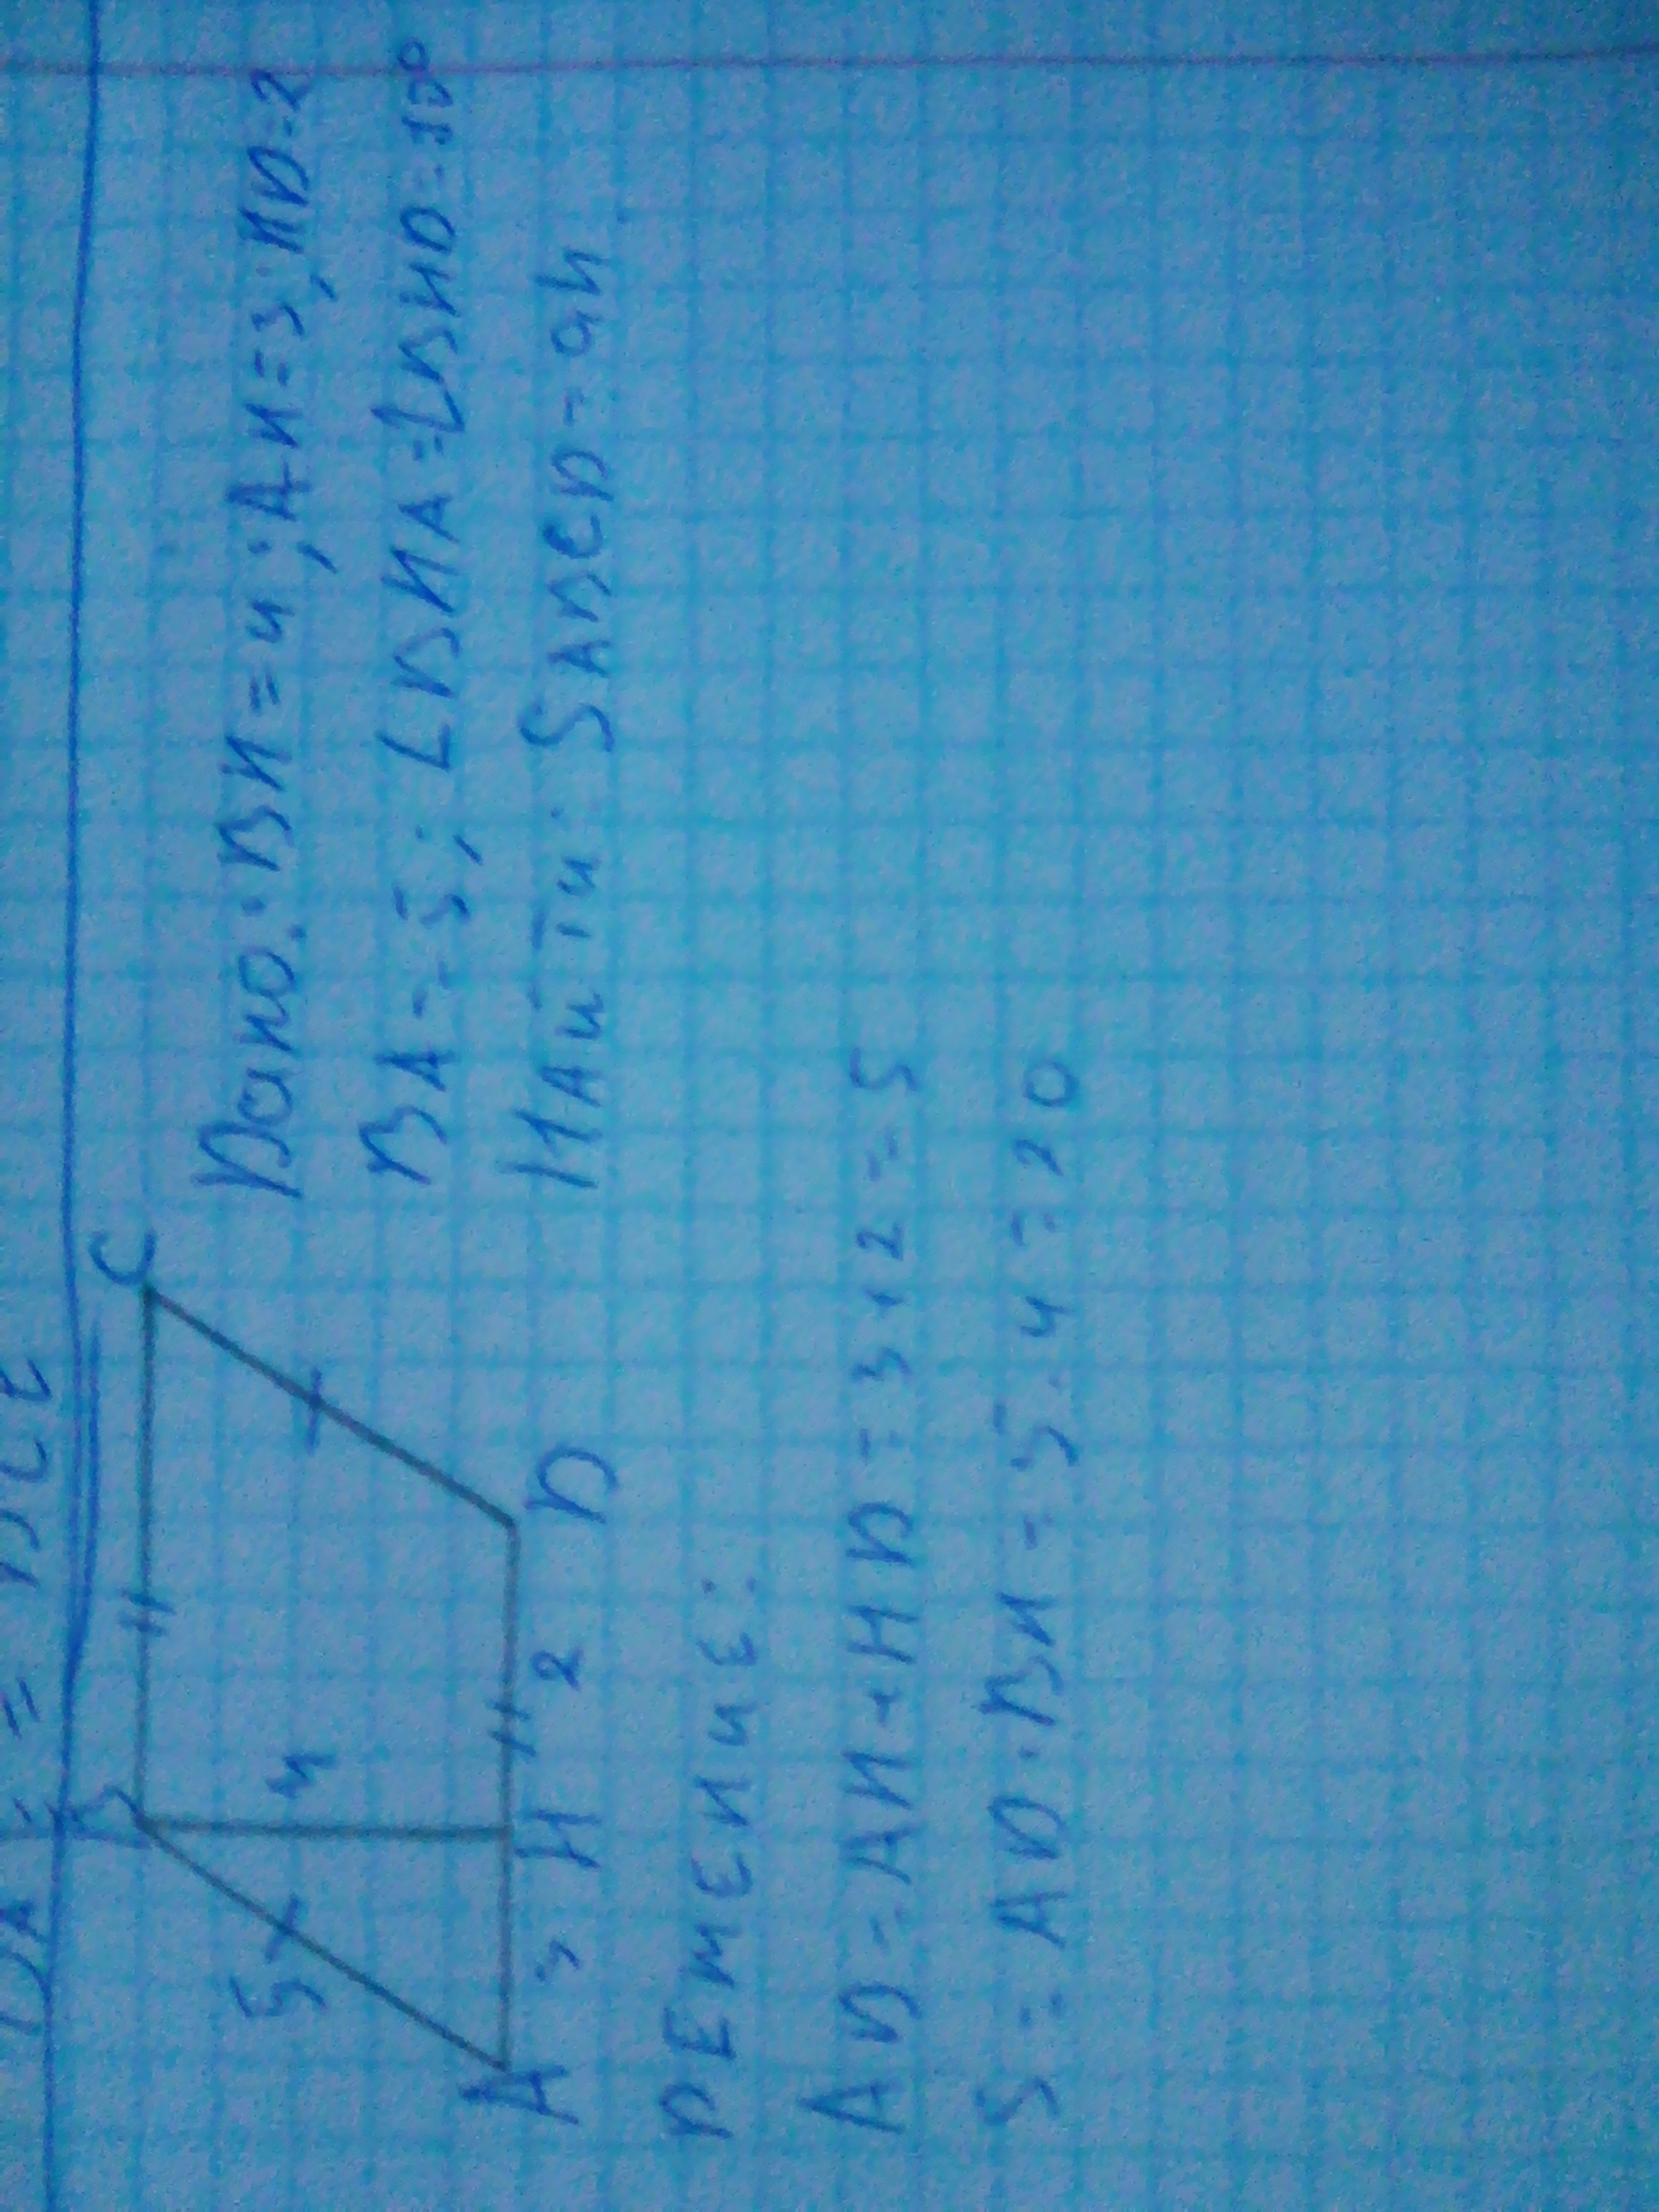 B
C
5
4
A
3
H
2
D
Дано: BH=4; AH=3; HD=2
BA=5; ∠BHA=∠BHD=
Найти: SABCD=ah
РЕШЕНИЕ:
AD=AH+HD=3+2=5
S=AD·BH=5·4=20